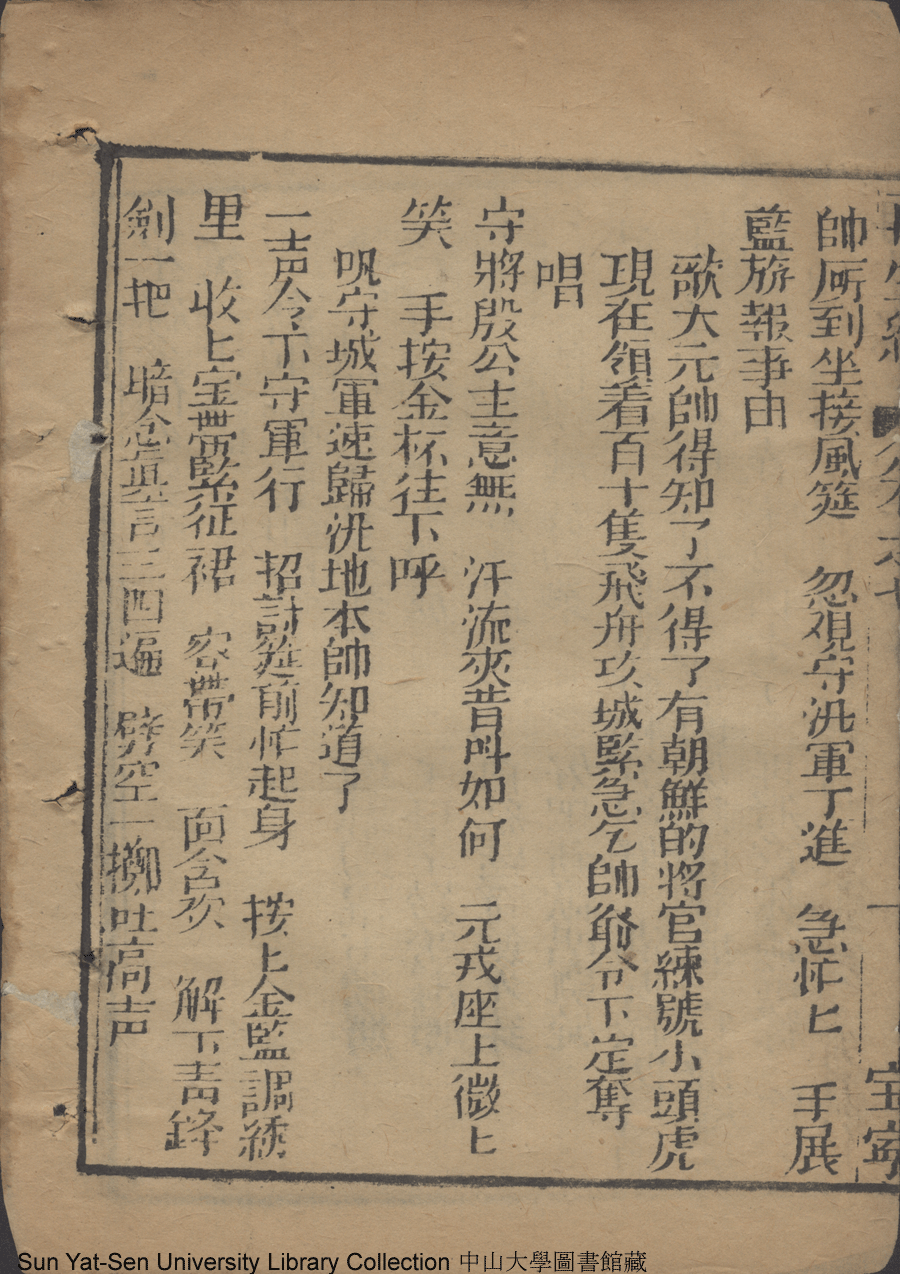 帥厨到坐接風筵　忽覌守汛軍丁進　急忙匕　手展
藍旂報事由
歌大元帥得知了不得了有朝鮮的将官練號小頭虎
現在領着百十隻飛舟攻城緊急乞帥發令下定奪
唱
守將殷公主意無　汗流夾背呌如何　元戎座上微匕
笑　手按金杯往下呼
呪守城軍速歸汛地本帥知道了
一声令下守軍行　招討筵前忙起身　按上金監調綉
里　收上宝帶緊征裙　容帶笑　面含欢　解下青鋒
劍一把　暗念真言三四遍　劈空一擲吐高声
Sun Yat-Sen University Library Collection 中山大學圖書館藏